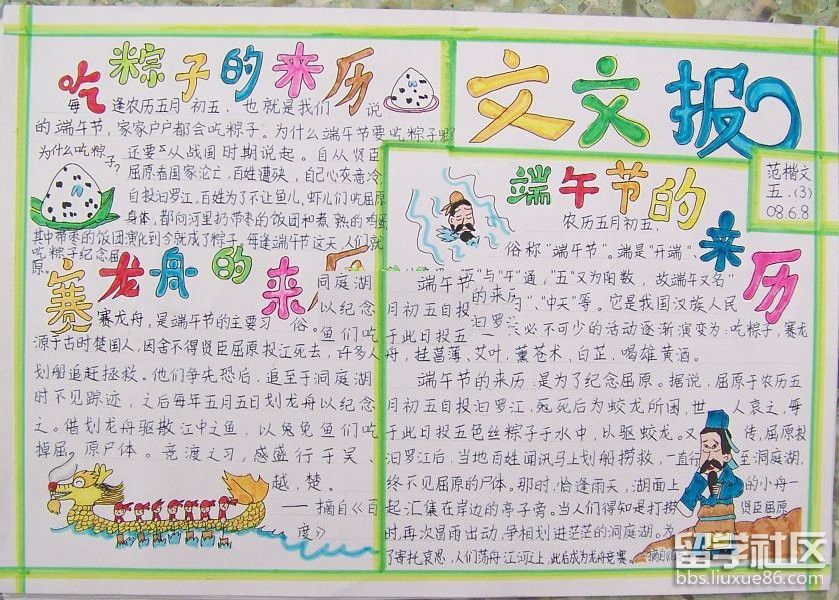 吃粽子的来历
每逢农历五月初五，也就是我们说
的端午节，家家户户都会吃粽子。为什么端午节要吃粽子呢？
为什么吃粽子？
还要从战国时期说起。自从贤臣
屈原看国家沦亡，百姓遭殃，自己心灰意冷，
自投汨罗江，百姓为了不让鱼儿，虾儿们吃屈原
身体，都向河里扔带枣的饭团和煮熟的鸡蛋
其中带枣的饭团演化到今就成了粽子，每逢端午节这天，人们就
吃粽子纪念屈
原。
赛龙舟的来历
赛龙舟，是端午节的主要习俗。
源于古时楚国人，因舍不得贤臣屈原投江死去，许多人
划船追赶拯救。他们争先恐后，追至于洞庭湖
时不见踪迹，之后每年五月五日划龙舟以纪念
之。借划龙舟驱散江中之鱼，以免鱼们吃
掉屈原尸体。竞渡之习，感盛行于吴、
越、楚。
——摘自《百
度》
洞庭湖
以纪念
鱼们吃
文文报
范楷文
五.(3)
08.6.8
端午节的来历
农历五月初五，
俗称“端午节”。端是“开端”、
与“午”通，“五”又为阳数，故端午又名“
“中天”等。它是我国汉族人民
必不可少的活动逐渐演变为：吃粽子，赛龙
舟，挂菖蒲、艾叶，薰苍术、白芷，喝雄黄酒。
端午节
的来历
月初五自投
汨罗
于此日投五
端午节的来历：是为了纪念屈原。据说，屈原于农历五
月初五自投汨罗江，死死后为蛟龙所困，世人哀之，每
于此日投五色丝粽子于水中，以驱蛟龙。又传，屈原投
汨罗江后，当地百姓闻讯马上划船捞救，一直行至洞庭湖，
终不见屈原的尸体。那时，恰逢雨天，湖面上的小舟一
起汇集在岸边的亭子旁。当人们得知是打捞贤臣屈原
时，再次冒雨出动，争相划进茫茫的洞庭湖。为
了寄托哀思，人们荡舟江河上，此后成为龙舟竞赛。
留学社区
bbs.liuxue86.com